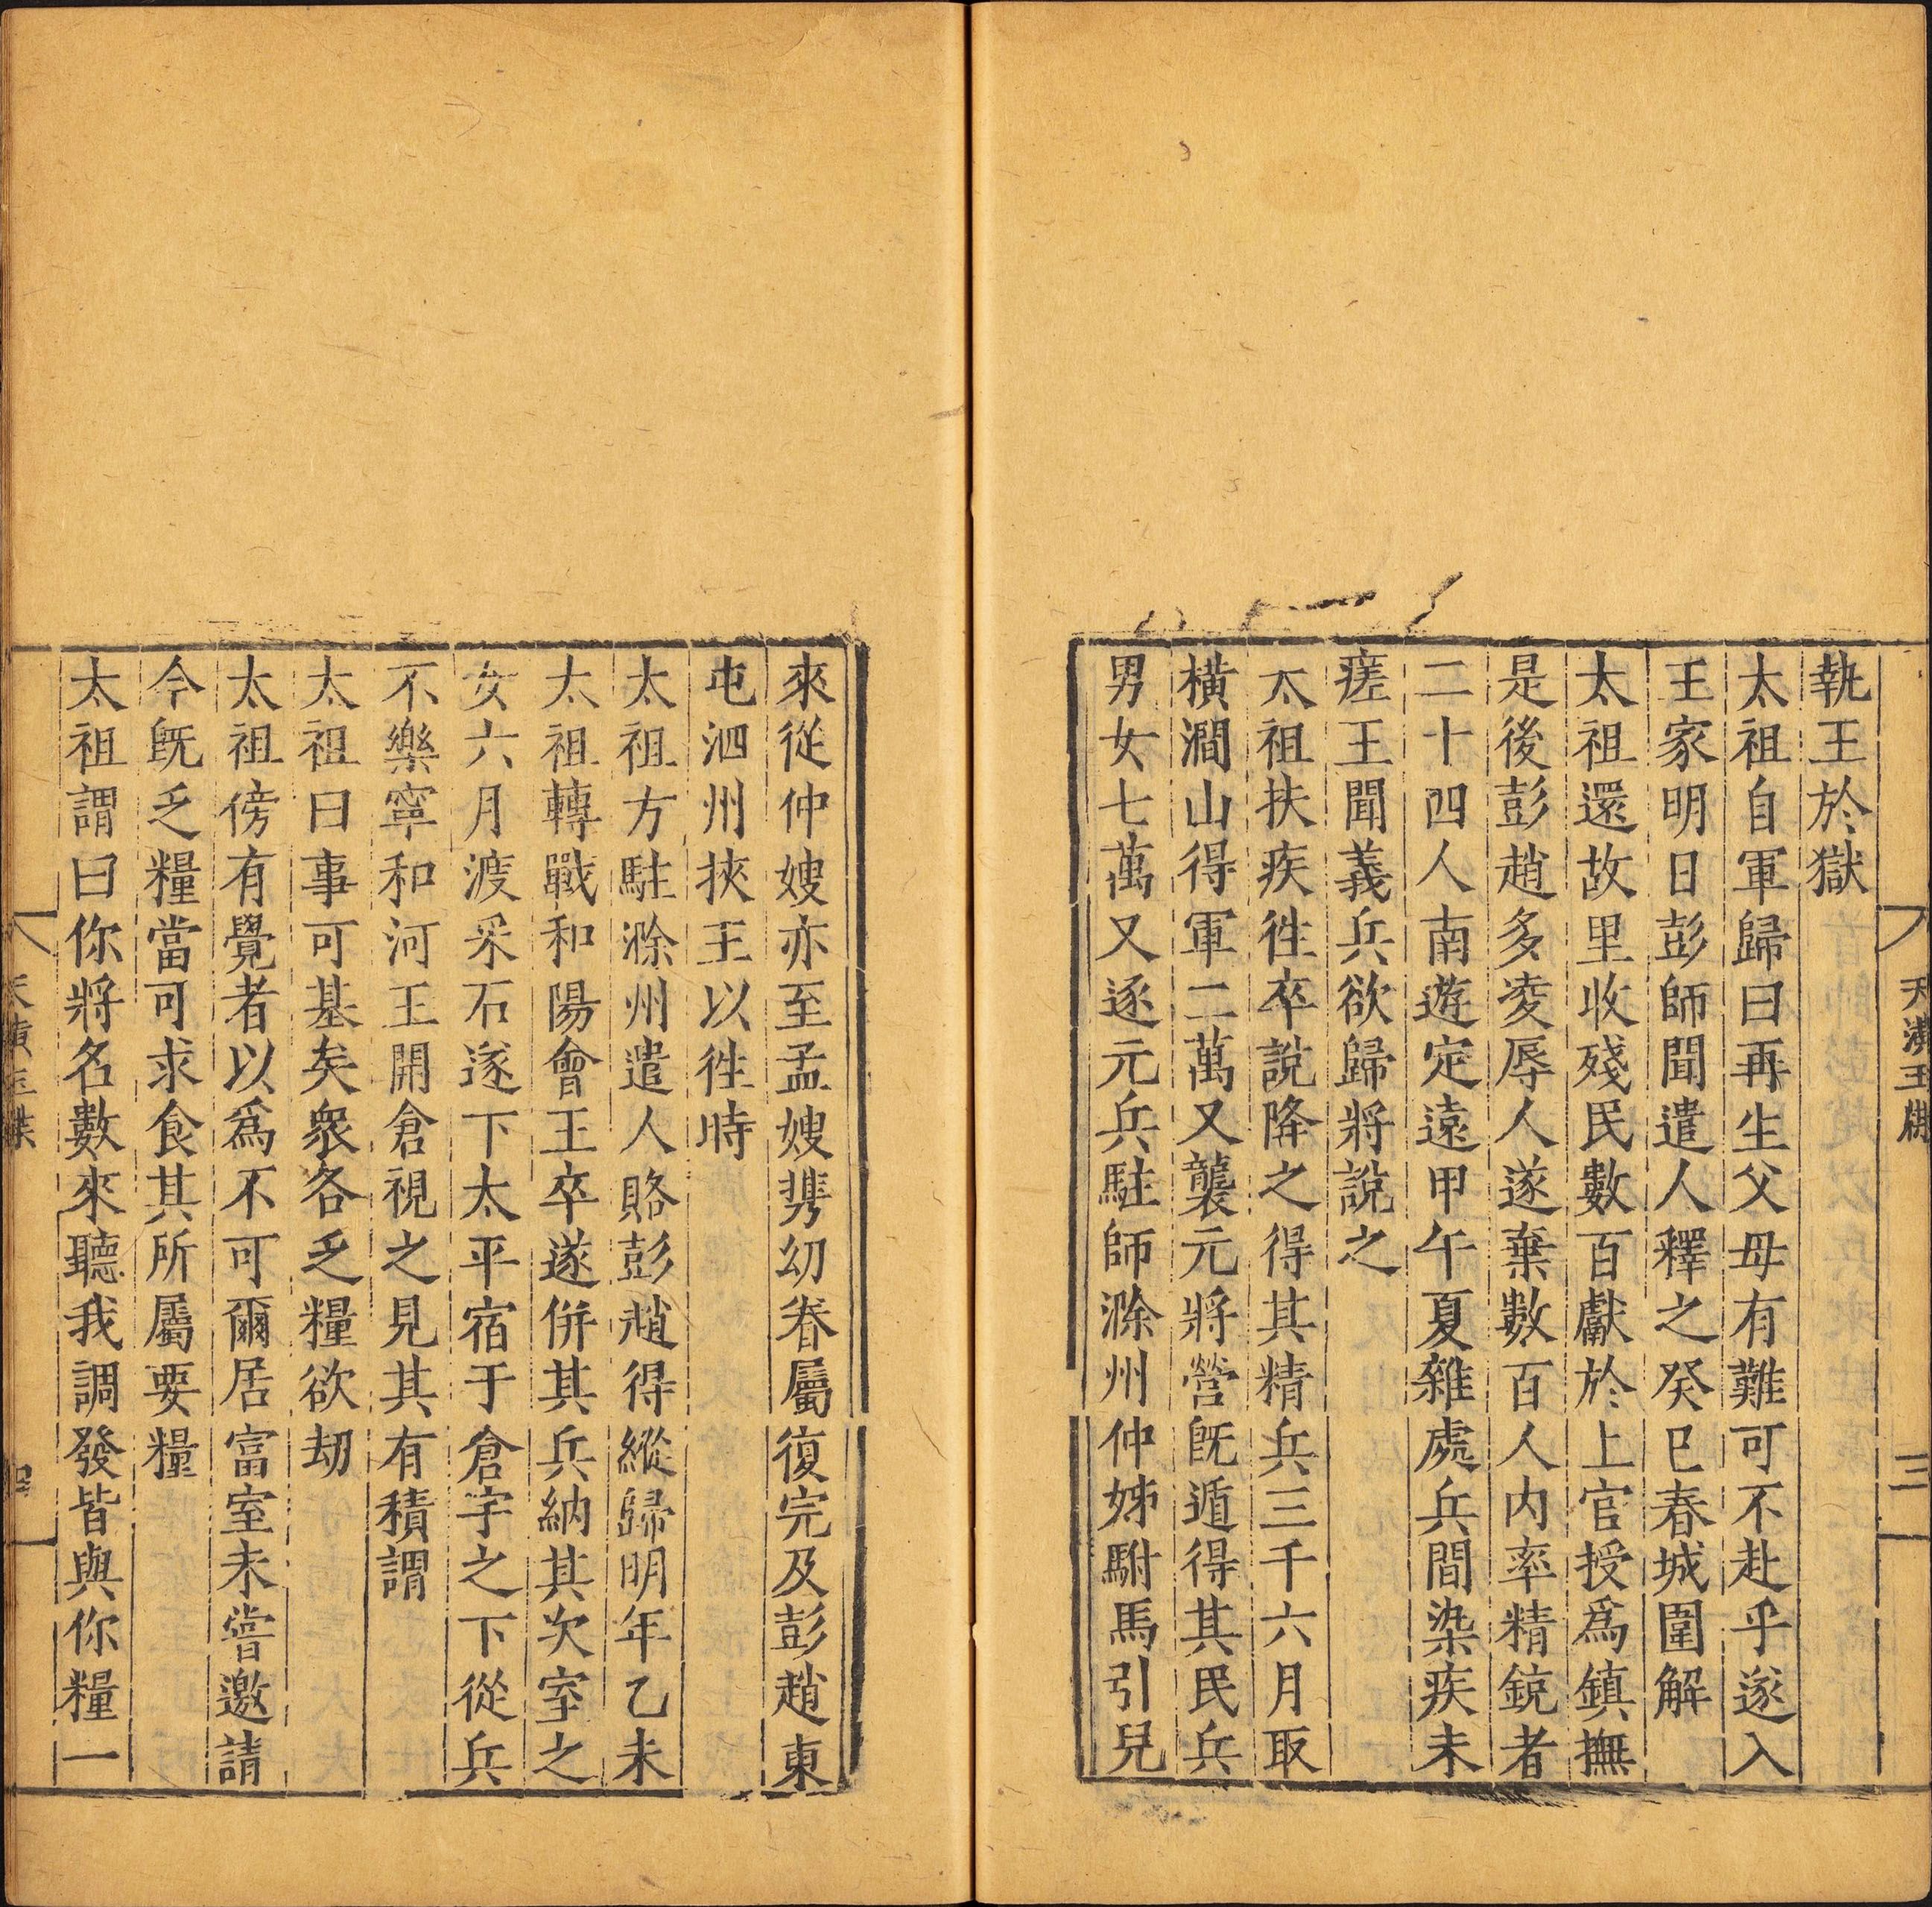 天潢玉牒
三
執王於獄
太祖自軍歸曰再生父母有難可不赴乎遂入
王家明日彭師聞遣人釋之癸巳春城圍解
太祖還故里收殘民數百獻於上官授爲鎮撫
是後彭趙多凌辱人遂棄數百人内率精銳者
二十四人南遊定遠甲午夏雜處兵間染疾未
瘥王聞義兵欲歸將說之
太祖扶疾徃卒說降之得其精兵三千六月取
橫澗山得軍二萬又襲元將營旣遁得其民兵
男女七萬又逐元兵駐師滁州仲姊駙馬引兒
來從仲嫂亦至孟嫂擕幼眷屬復完及彭趙東
屯泗州挾王以徃時
太祖方駐滁州遣人賂彭趙得縱歸明年乙未
太祖轉戰和陽會王卒遂併其兵納其次室之
女六月渡采石遂下太平宿于倉宇之下從兵
不樂寧和河王開倉視之見其有積謂
太祖曰事可基矣衆各乏糧欲刼
太祖傍有覺者以爲不可爾居富室未嘗邀請
今旣乏糧當可求食其所屬要糧
太祖謂曰你將名數來聽我調發皆與你糧一
天潢玉牒
四